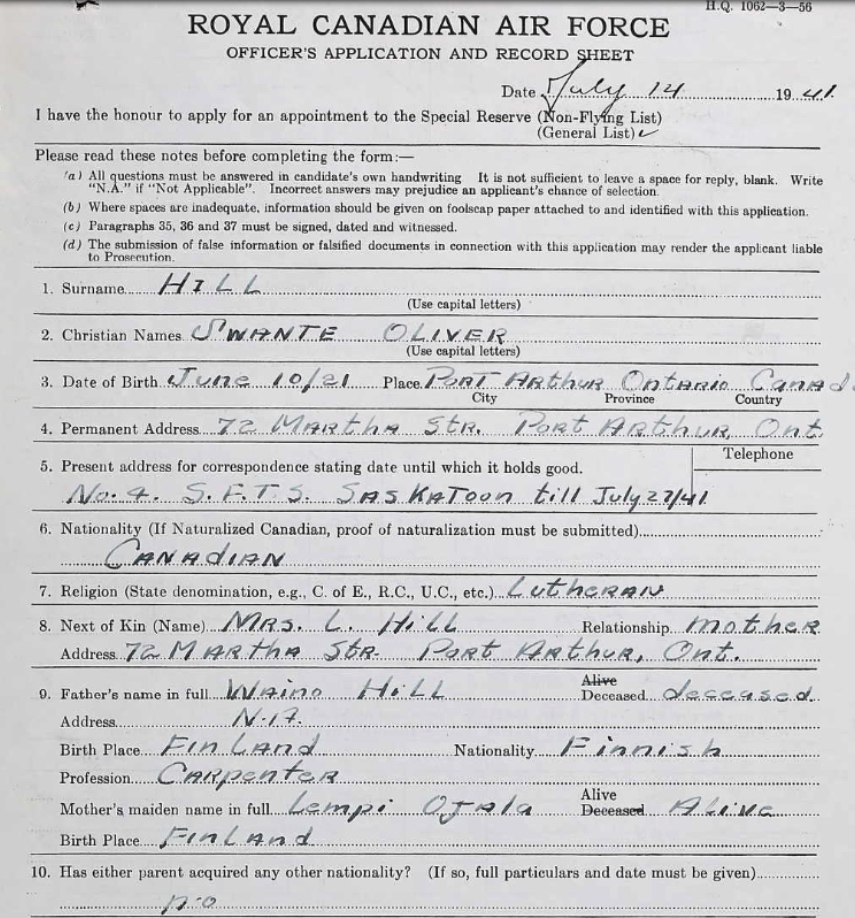 H.Q. 1062—3—56
ROYAL CANADIAN AIR FORCE
OFFICER'S APPLICATION AND RECORD SHEET
Date July 14 1941.
I have the honour to apply for an appointment to the Special Reserve (Non-Flying List)
(General List) ✓
Please read these notes before completing the form:—
(a) All questions must be answered in candidate's own handwriting It is not sufficient to leave a space for reply, blank. Write
"N.A." if "Not Applicable". Incorrect answers may prejudice an applicant's chance of selection.
(b) Where spaces are inadequate, information should be given on foolscap paper attached to and identified with this application.
(c) Paragraphs 35, 36 and 37 must be signed, dated and witnessed.
(d) The submission of false information or falsified documents in connection with this application may render the applicant liable
to Prosecution.
1. Surname HILL
(Use capital letters)
2. Christian Names SWANTE OLIVER
(Use capital letters)
3. Date of Birth June 10/21 Place Port Arthur Ontario Canad
City Province Country
4. Permanent Address 72 Martha Str. Port Arthur, Ont.
Telephone
5. Present address for correspondence stating date until which it holds good.
No. 4. S.F.T.S. Saskatoon till July 27/41
6. Nationality (If Naturalized Canadian, proof of naturalization must be submitted)
Canadian
7. Religion (State denomination, e.g., C. of E., R.C., U.C., etc.) Lutheran
8. Next of Kin (Name) Mrs. L. Hill Relationship mother
Address 72 Martha Str. Port Arthur, Ont.
9. Father's name in full Waino Hill Alive Deceased deceased
Address N.A.
Birth Place Finland Nationality Finnish
Profession Carpenter
Mother's maiden name in full Lempi Ojala Alive Deceased Alive
Birth Place Finland
10. Has either parent acquired any other nationality? (If so, full particulars and date must be given)
no